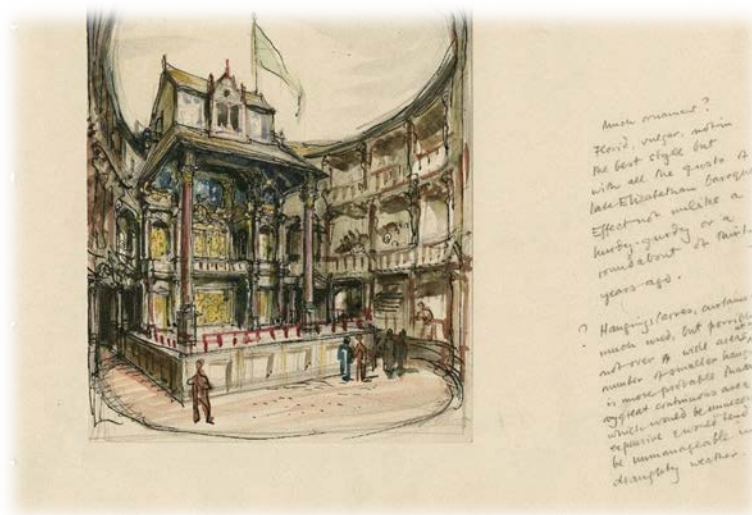 Much ornament?
Florid, vulgar, not in
the best style but
with all the gusto of
late Elizabethan Baroque
Effect not unlike a
hurdy-gurdy or a
roundabout of thirty
years ago.
? Hangings (arras, curtains
much used, but
not over a wide area
number of smaller
is more probable than
great continuous area
which would be
expensive & would tend
be unmanageable in
draughty weather.